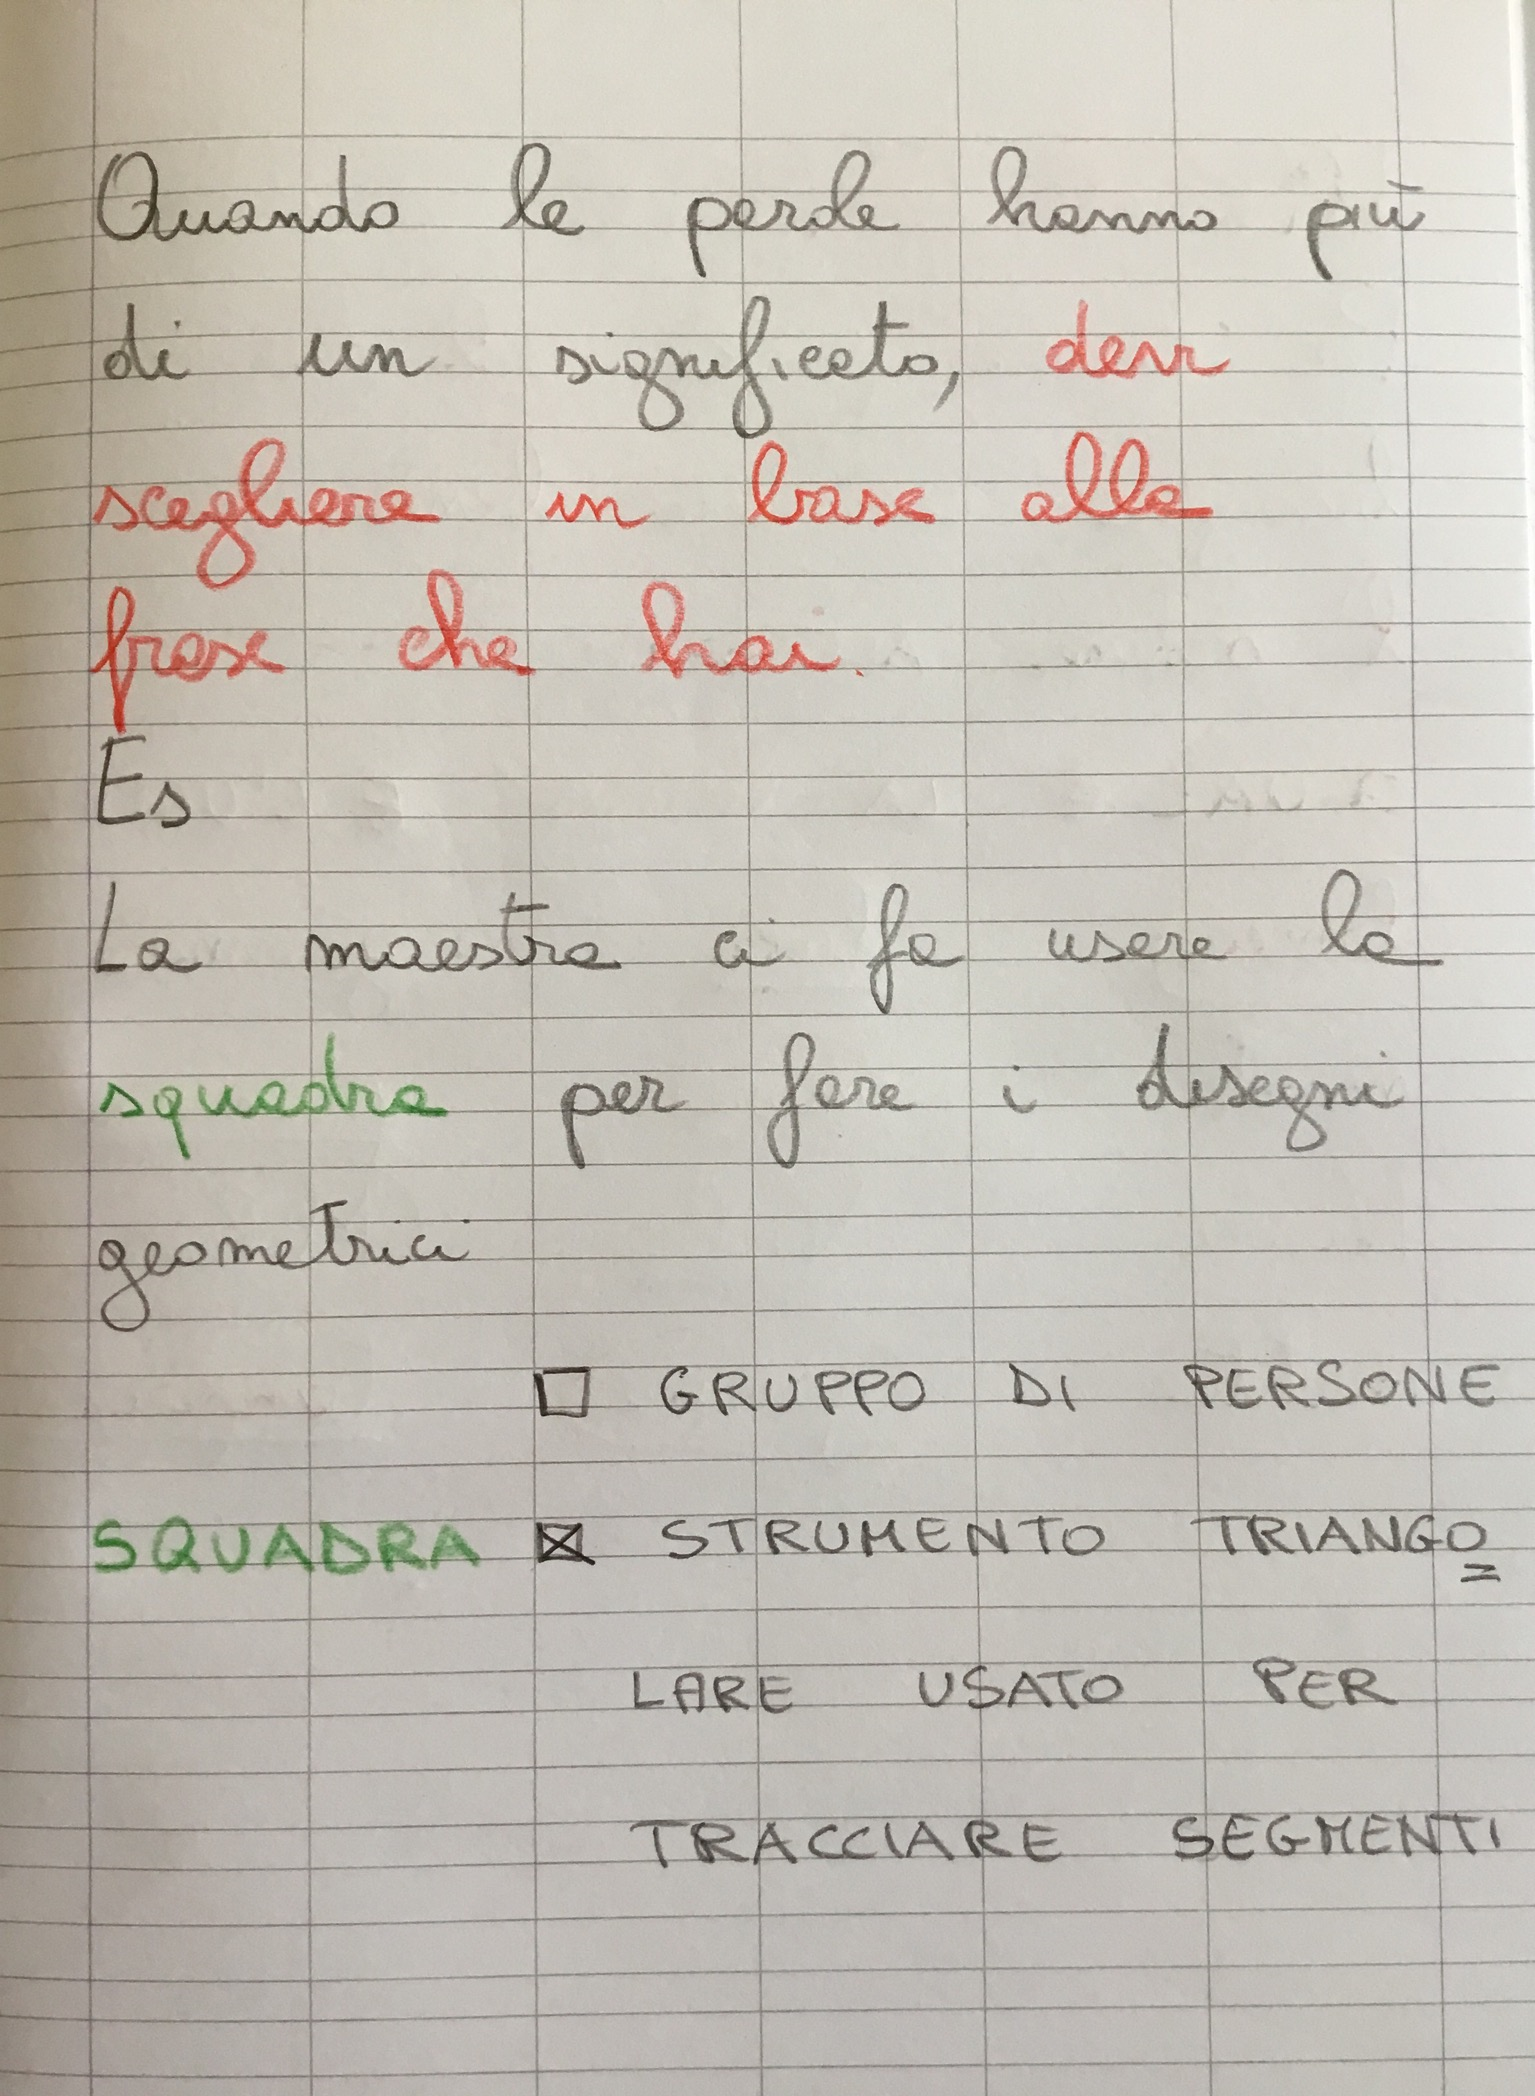 Quando le parole hanno più
di un significato, devi
scegliere in base alla
frase che hai.
Es
La maestra ci fa usare la
squadra per fare i disegni
geometrici
GRUPPO DI PERSONE
SQUADRA STRUMENTO TRIANGO=
LARE USATO PER
TRACCIARE SEGMENTI